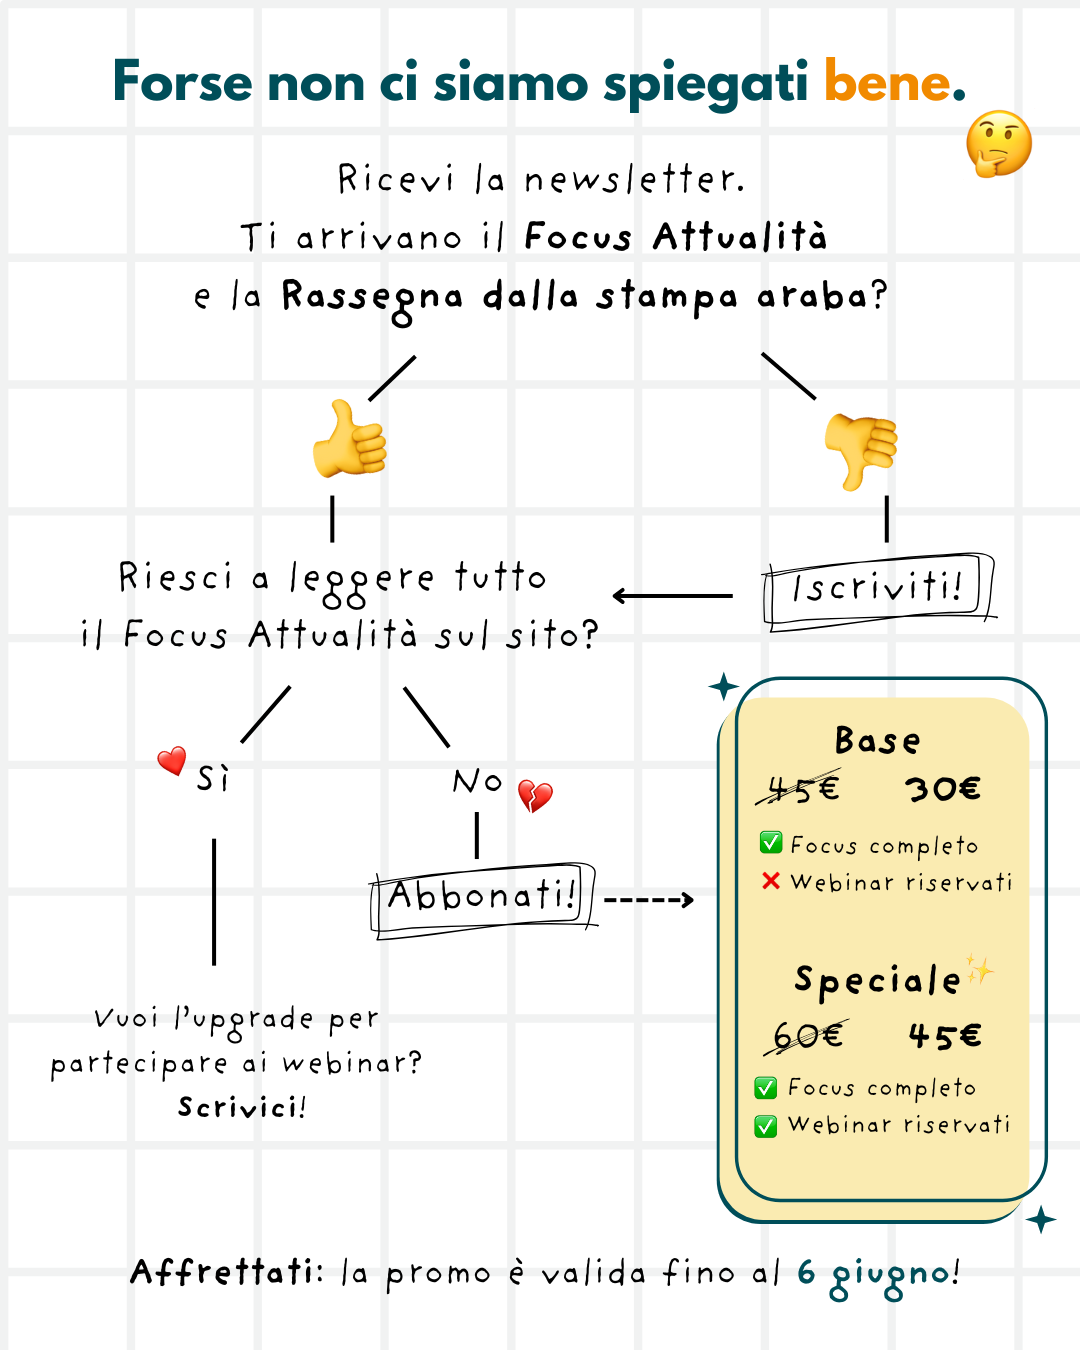 Forse non ci siamo spiegati bene.
Ricevi la newsletter.
Ti arrivano il Focus Attualità
e la Rassegna dalla stampa araba?
Riesci a leggere tutto
il Focus Attualità sul sito?
Iscriviti!
Sì
No
Abbonati!
Vuoi l'upgrade per
partecipare ai webinar?
Scrivici!
Base
45€ 30€
Focus completo
Webinar riservati
Speciale
60€ 45€
Focus completo
Webinar riservati
Affrettati: la promo è valida fino al 6 giugno!